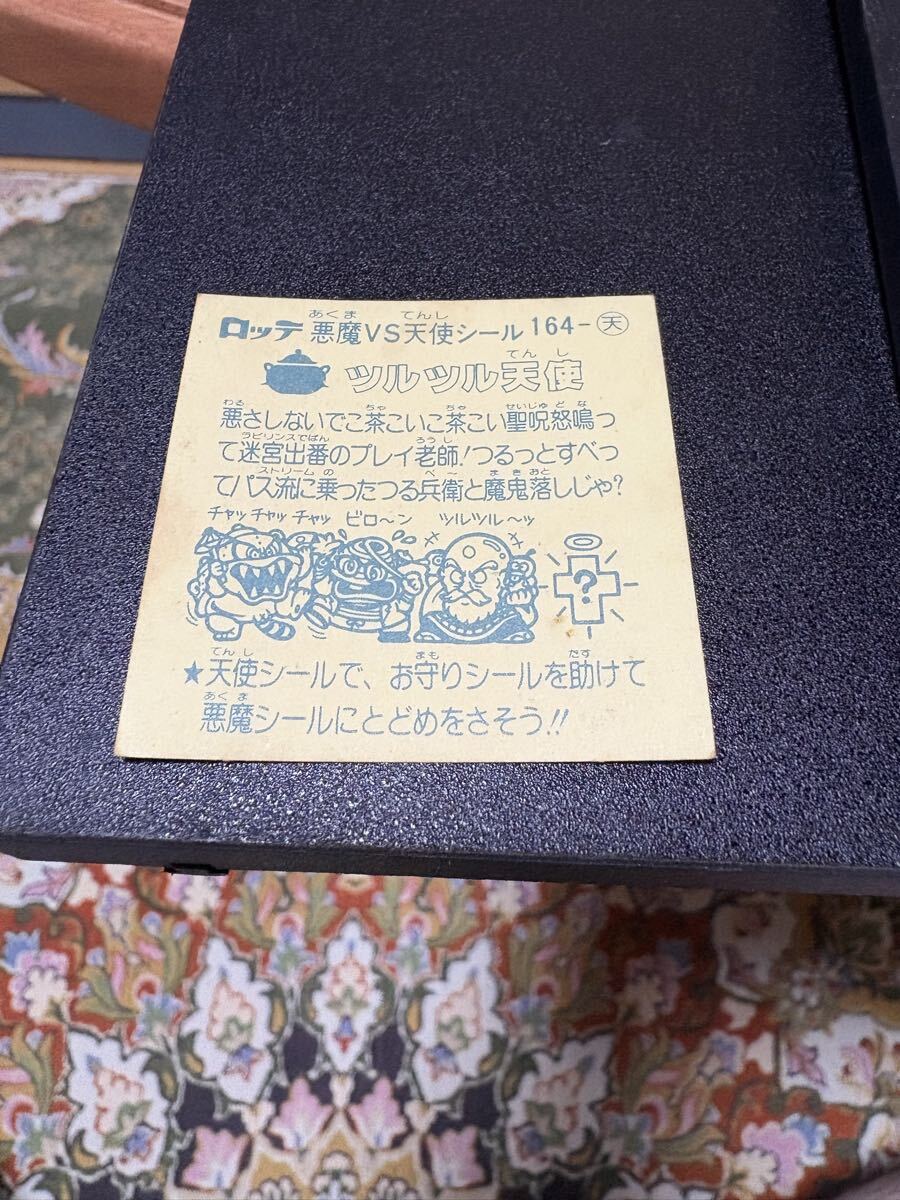 ロッテ 悪魔VS天使シール 164-天
ツルツル天使
悪さしないでこ茶こいこ茶こい聖呪怒鳴っ
て迷宮出番のプレイ老師!つるっとすべっ
てパス流に乗ったつる兵衛と魔鬼落しじゃ?
チャッ チャッ チャッ ビロ〜ン ツルツル〜ッ
?
★天使シールで、お守りシールを助けて
悪魔シールにとどめをさそう!!